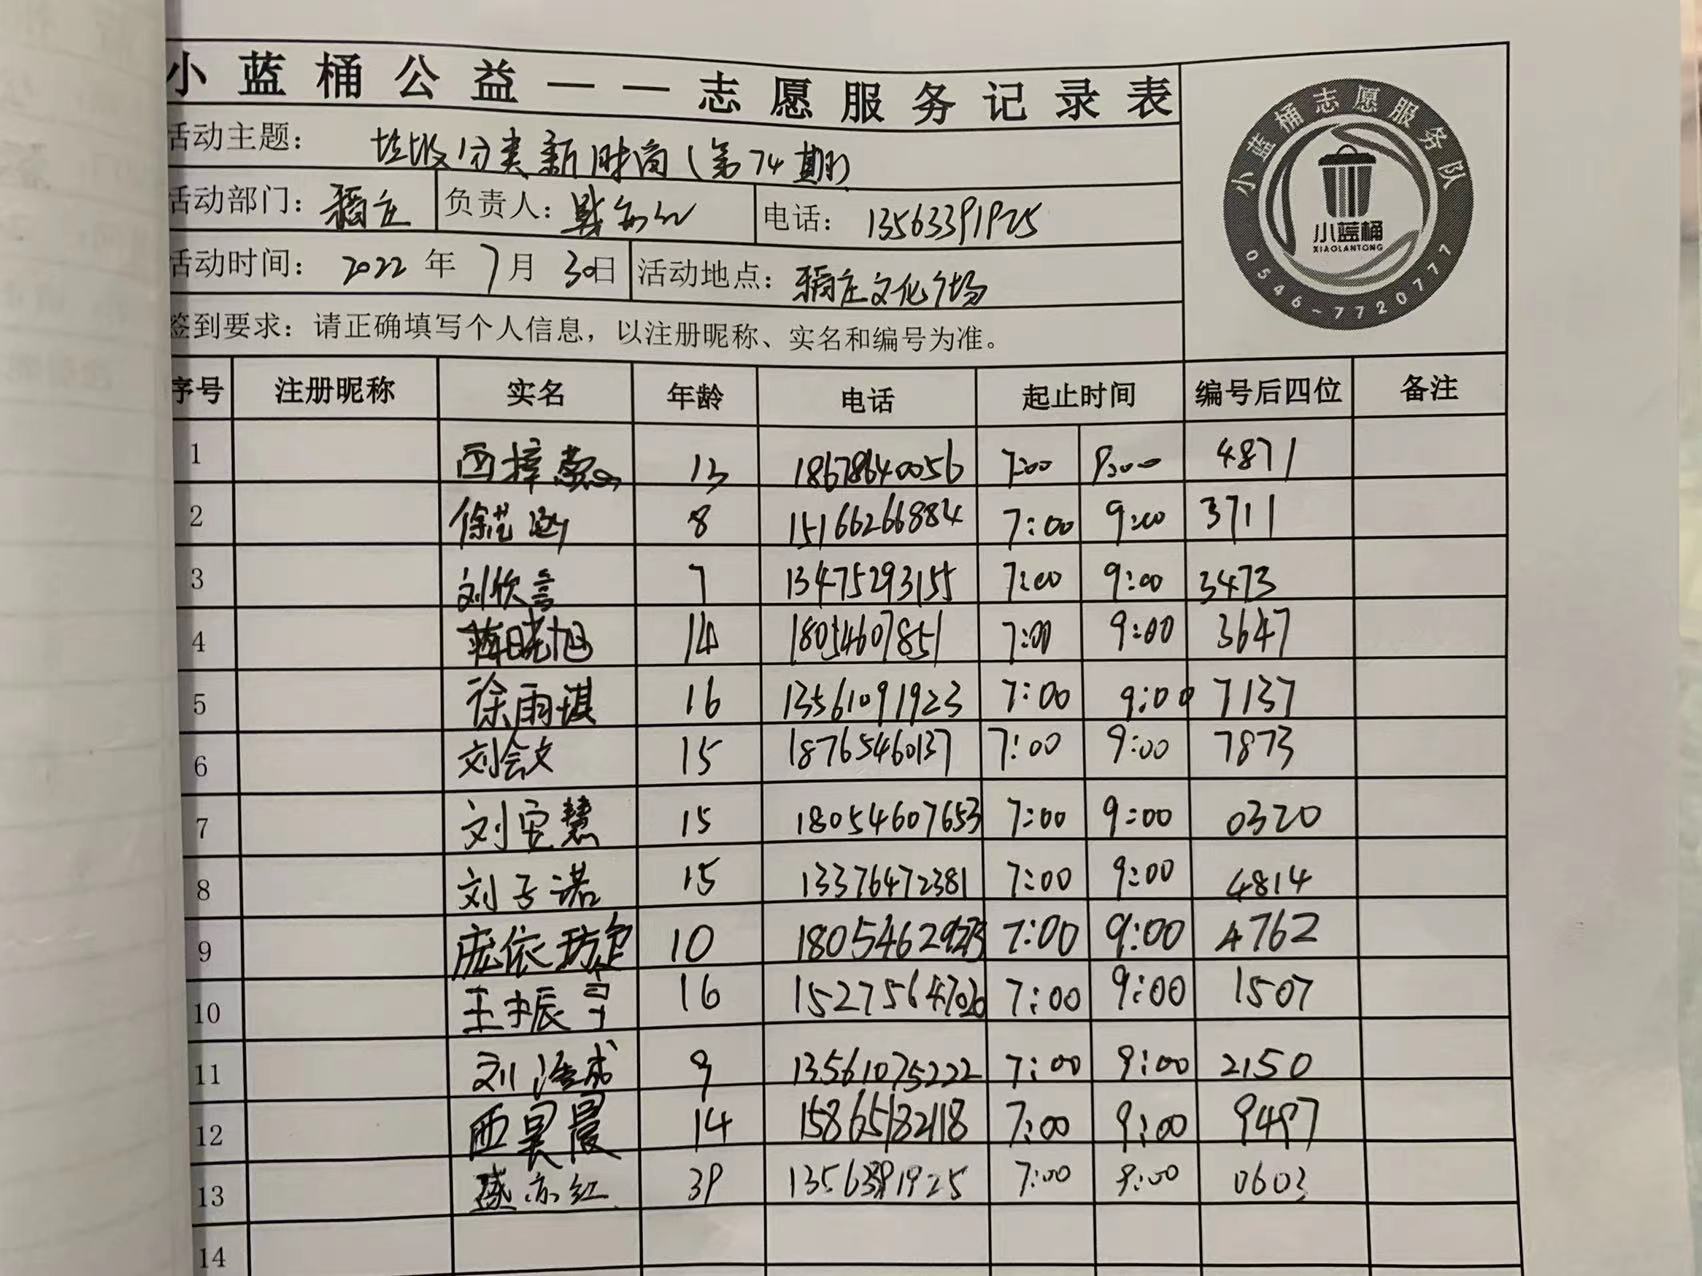 小蓝桶公益——志愿服务记录表
活动主题： 垃圾分类新时尚（第74期）
活动部门： 稻庄 负责人： 电话： 13563391925
活动时间： 2022年7月30日 活动地点： 稻庄文化广场
签到要求：请正确填写个人信息，以注册昵称、实名和编号为准。
小蓝桶志愿服务队
小蓝桶
XIAOLANTONG
0546-7720777
序号 注册昵称 实名 年龄 电话 起止时间 编号后四位 备注
1 西梓 13 18678640056 7:00 9:00 4871
2 徐艺 8 15166266884 7:00 9:00 3711
3 刘欣言 7 13475293155 7:00 9:00 3473
4 蒋晓旭 14 18054607851 7:00 9:00 3647
5 徐雨琪 16 13561091923 7:00 9:00 7137
6 刘会文 15 18765460137 7:00 9:00 7873
7 刘安慧 15 18054607653 7:00 9:00 0320
8 刘子诺 15 13376472381 7:00 9:00 4814
9 庞依 10 7:00 9:00 4762
10 王振 16 7:00 9:00 1507
11 刘浩成 9 13561075222 7:00 9:00 2150
12 西昊晨 14 15865182118 7:00 9:00 9497
13 盛亦红 39 13563391925 7:00 9:00 0603
14